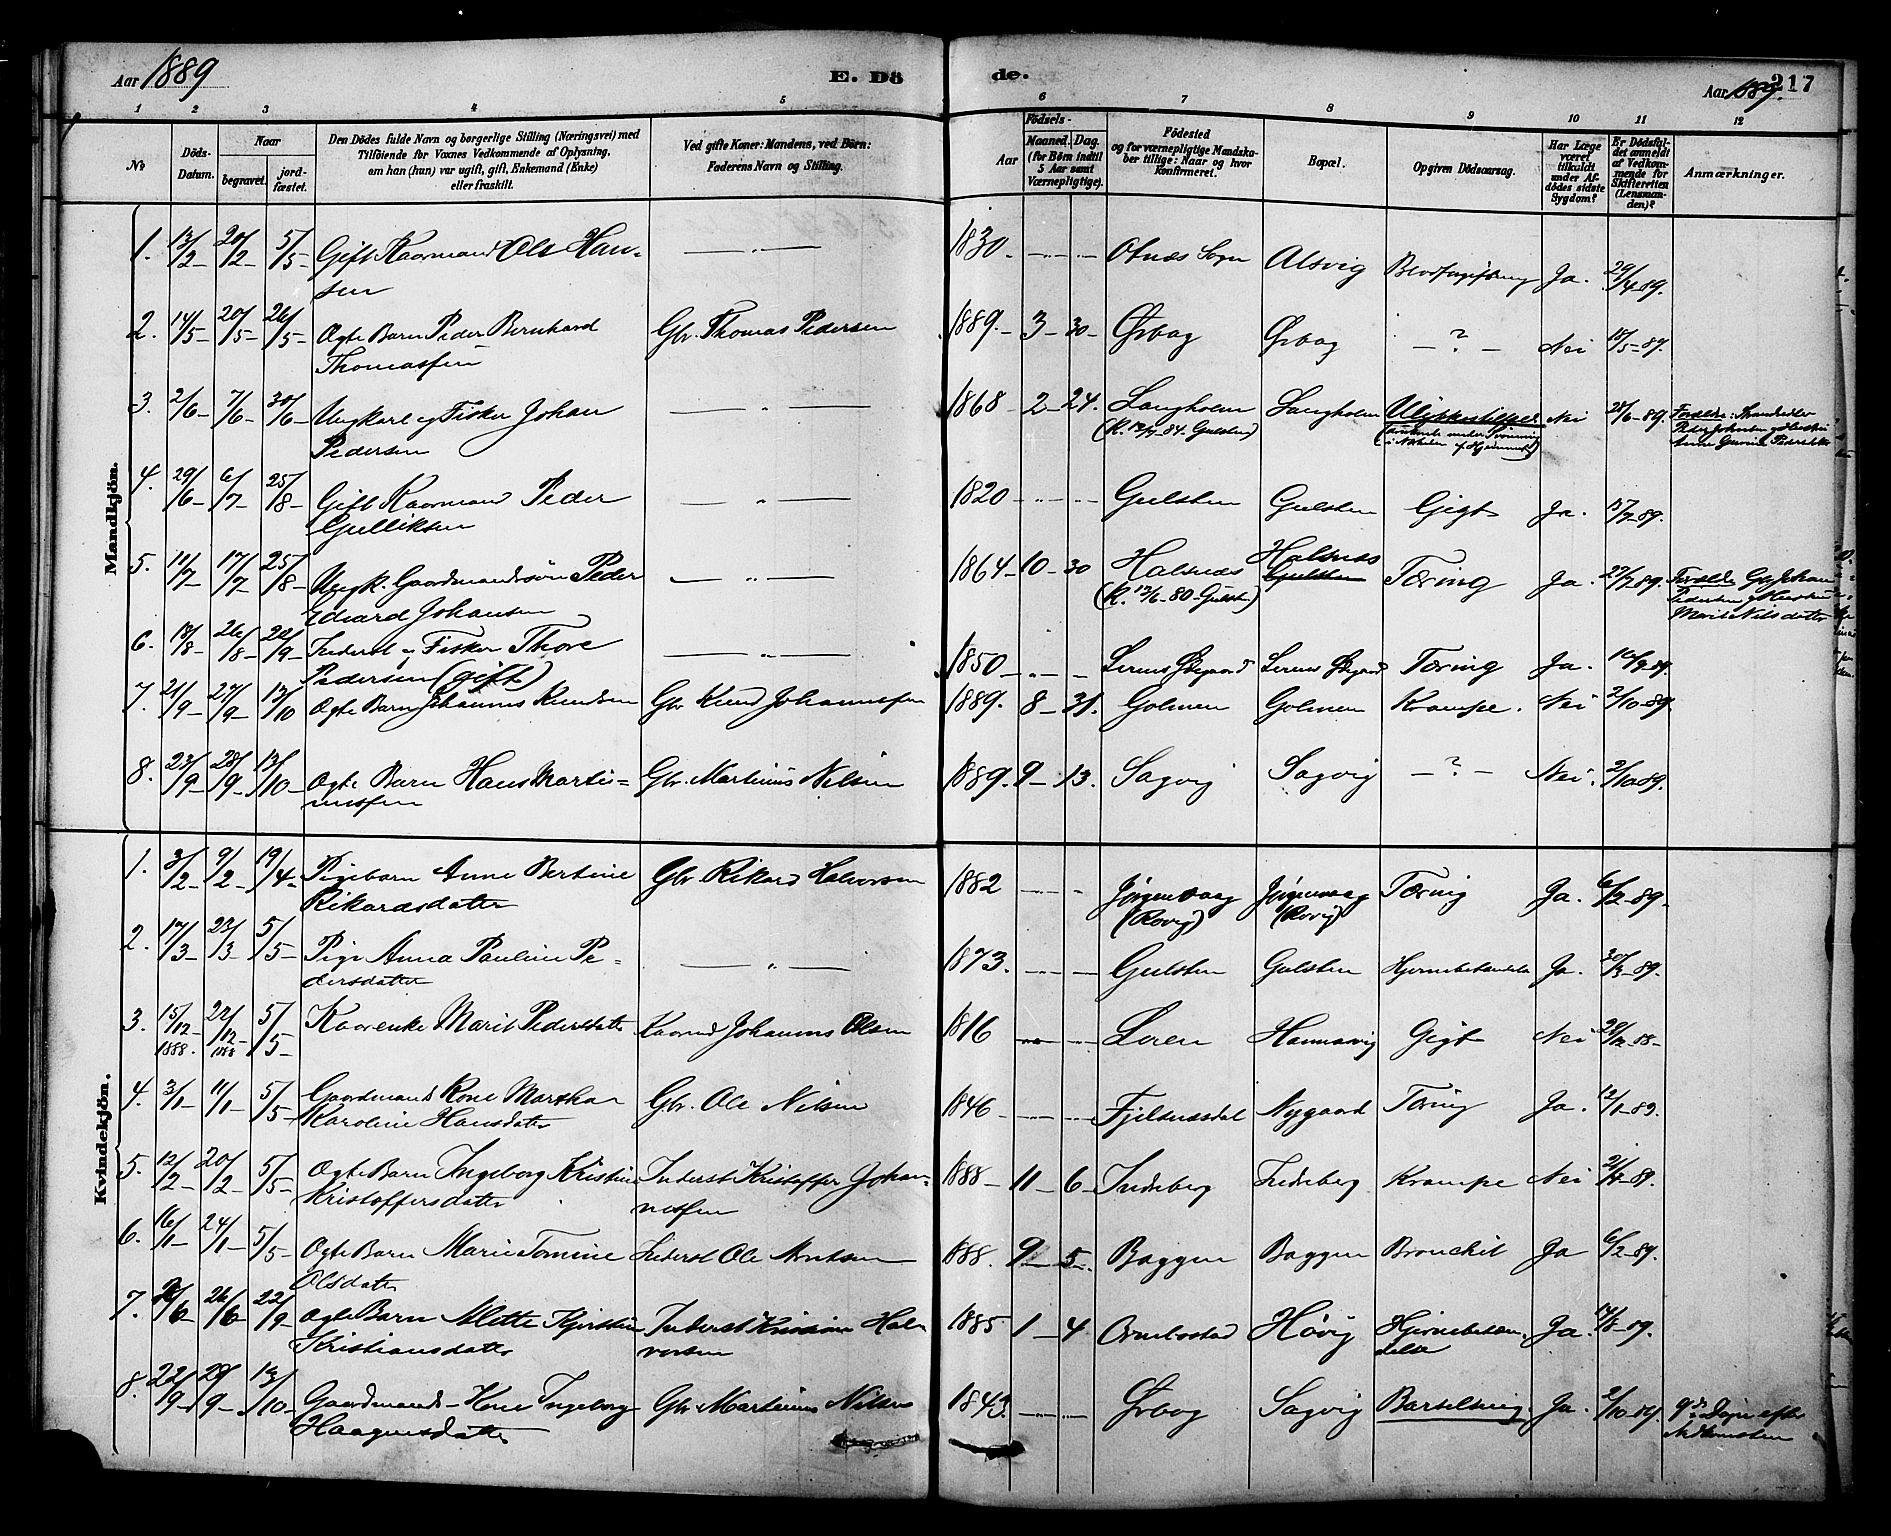 Aar 1889
E. Dö
de.
217
Aar 1889.
1 2 3 4 5 6 7 8 9 10 11 12
No
Döds-Datum.
Naar
begravet.
jordfæstet.
Den Dödes fulde Navn og borgerlige Stilling (Næringsvei) med
Tilföiende for Voxnes Vedkommende af Oplysning,
om han (hun) var ugift, gift, Enkemand (Enke)
eller fraskilt.
Ved gifte Koner: Mandens, ved Börn:
Faderens Navn og Stilling.
Födsels-
Aar
Maaned. Dag.
(for Börn indtil
5 Aar samt
Værnepligtige).
Födested
og for værnepligtige Mandskaber tillige: Naar og hvor
konfirmeret.
Bopæl.
Opgiven Dödsaarsag.
Har Læge
været
tilkaldt
under Afdödes sidste
Sygdom?
Er Dödsfaldet anmeldt
af Vedkommende for
Skifteretten
(Lensmanden)?
Anmærkninger.
Mandkjön.
1. 13/2 20/2 5/5 Gift Kaarmand Ole Hansen 1830. Otnæs Sogn Alsvig Blodforgiftning Ja. 29/4-89.
2. 14/5 20/5 26/5 Ægte Barn Peder Bernhard Gbr. Thomas Pedersen 1889 3 30 Ørbog Ørbog ? Nei 18/5-89.
Thomassen
3. 2/6 7/6 30/6 Ungkarl og Fisker Johan 1868 2 24. Langholm Langholm Ulykkestilfælde Nei 28/6-89. Forældre:
Pedersen
4. 29/6 6/7 25/8 Gift Kaarmand Peder 1820 Gulsten Gulsten Gigt Ja. 15/7-89.
Gulliksen
5. 11/7 17/7 25/8 Ungk. Gaardmandssøn Peder 1864 10 30 Halsnæs Halsnæs Tæring Ja. 27/7-89. Forældre Gbr Johan
Edvard Johansen (K. 13/6-80 Gulsten) Pedersen og Hustru
Marit Nilsdatter
6. 18/8 26/8 22/9 Inderst og Fisker Thore 1850 Tæring Ja.
Pedersen (gift)
7. 21/9 27/9 13/10 Ægte Barn Johannes Knudsen Gbr Knud Johannessen 1889. 8 31. Golmen Golmen Krampe. Nei 2/10-89.
8. 23/9 28/9 13/10 Ægte Barn Hans Martinussen Gbr. Martinus Nilsen 1889. 9 13. Sagvig Sagvig ? Nei. 2/10-89.
Kvindekjön.
1. 3/2 9/2 19/4 Pigebarn Anne Bertine Gbr. Rikard Halvorsen 1882 Jörgenvaag Jörgenvaag Tæring Ja. 6/2-89.
Rikardsdatter (Rovig) (Rovig)
2. 17/3 23/3 5/5 Pige Anna Pauline Pedersdatter 1873. Gulsten Gulsten Ja. 30/3-89.
3. 15/12 1888. 22/12 1888 5/5 Kaarenke Marit Pedersdatter Kaarmd Johannes Olsen 1816 Leren Hannavig Gigt Nei 28/12-88
4. 3/1 11/1 5/5 Gaardmands Kone Martha Gbr. Ole Nilsen 1846 Nygaard Tæring Ja. 12/1-89.
Karoline Hansdatter
5. 12/2 20/2 5/5 Ægte Barn Ingeborg Kristine Inderst Kristoffer Johannessen 1888 11 6 Indreberg Indreberg Krampe Nei
Kristoffersdatter
6. 16/1 24/1 5/5 Ægte Barn Marie Tomine Inderst Ole Arntsen 1888. 9 5. Baggen Baggen Bronchit Ja 6/2-89.
Olsdatter
7. 26/6 22/9 Ægte Barn Mette Kjerstine Inderst Kristian Halvorsen 1885 1 4 Høvig Hjernebetændelse Ja.
Kristiansdatter
8. 22/9 29/9 13/10 Gaardmands-Kone Ingeborg Gbr. Martinus Nilsen 1843. Ørbog Sagvig Barselseng. Ja. 2/10-89. 9 Dage efter
Haagensdatter Nedkomsten